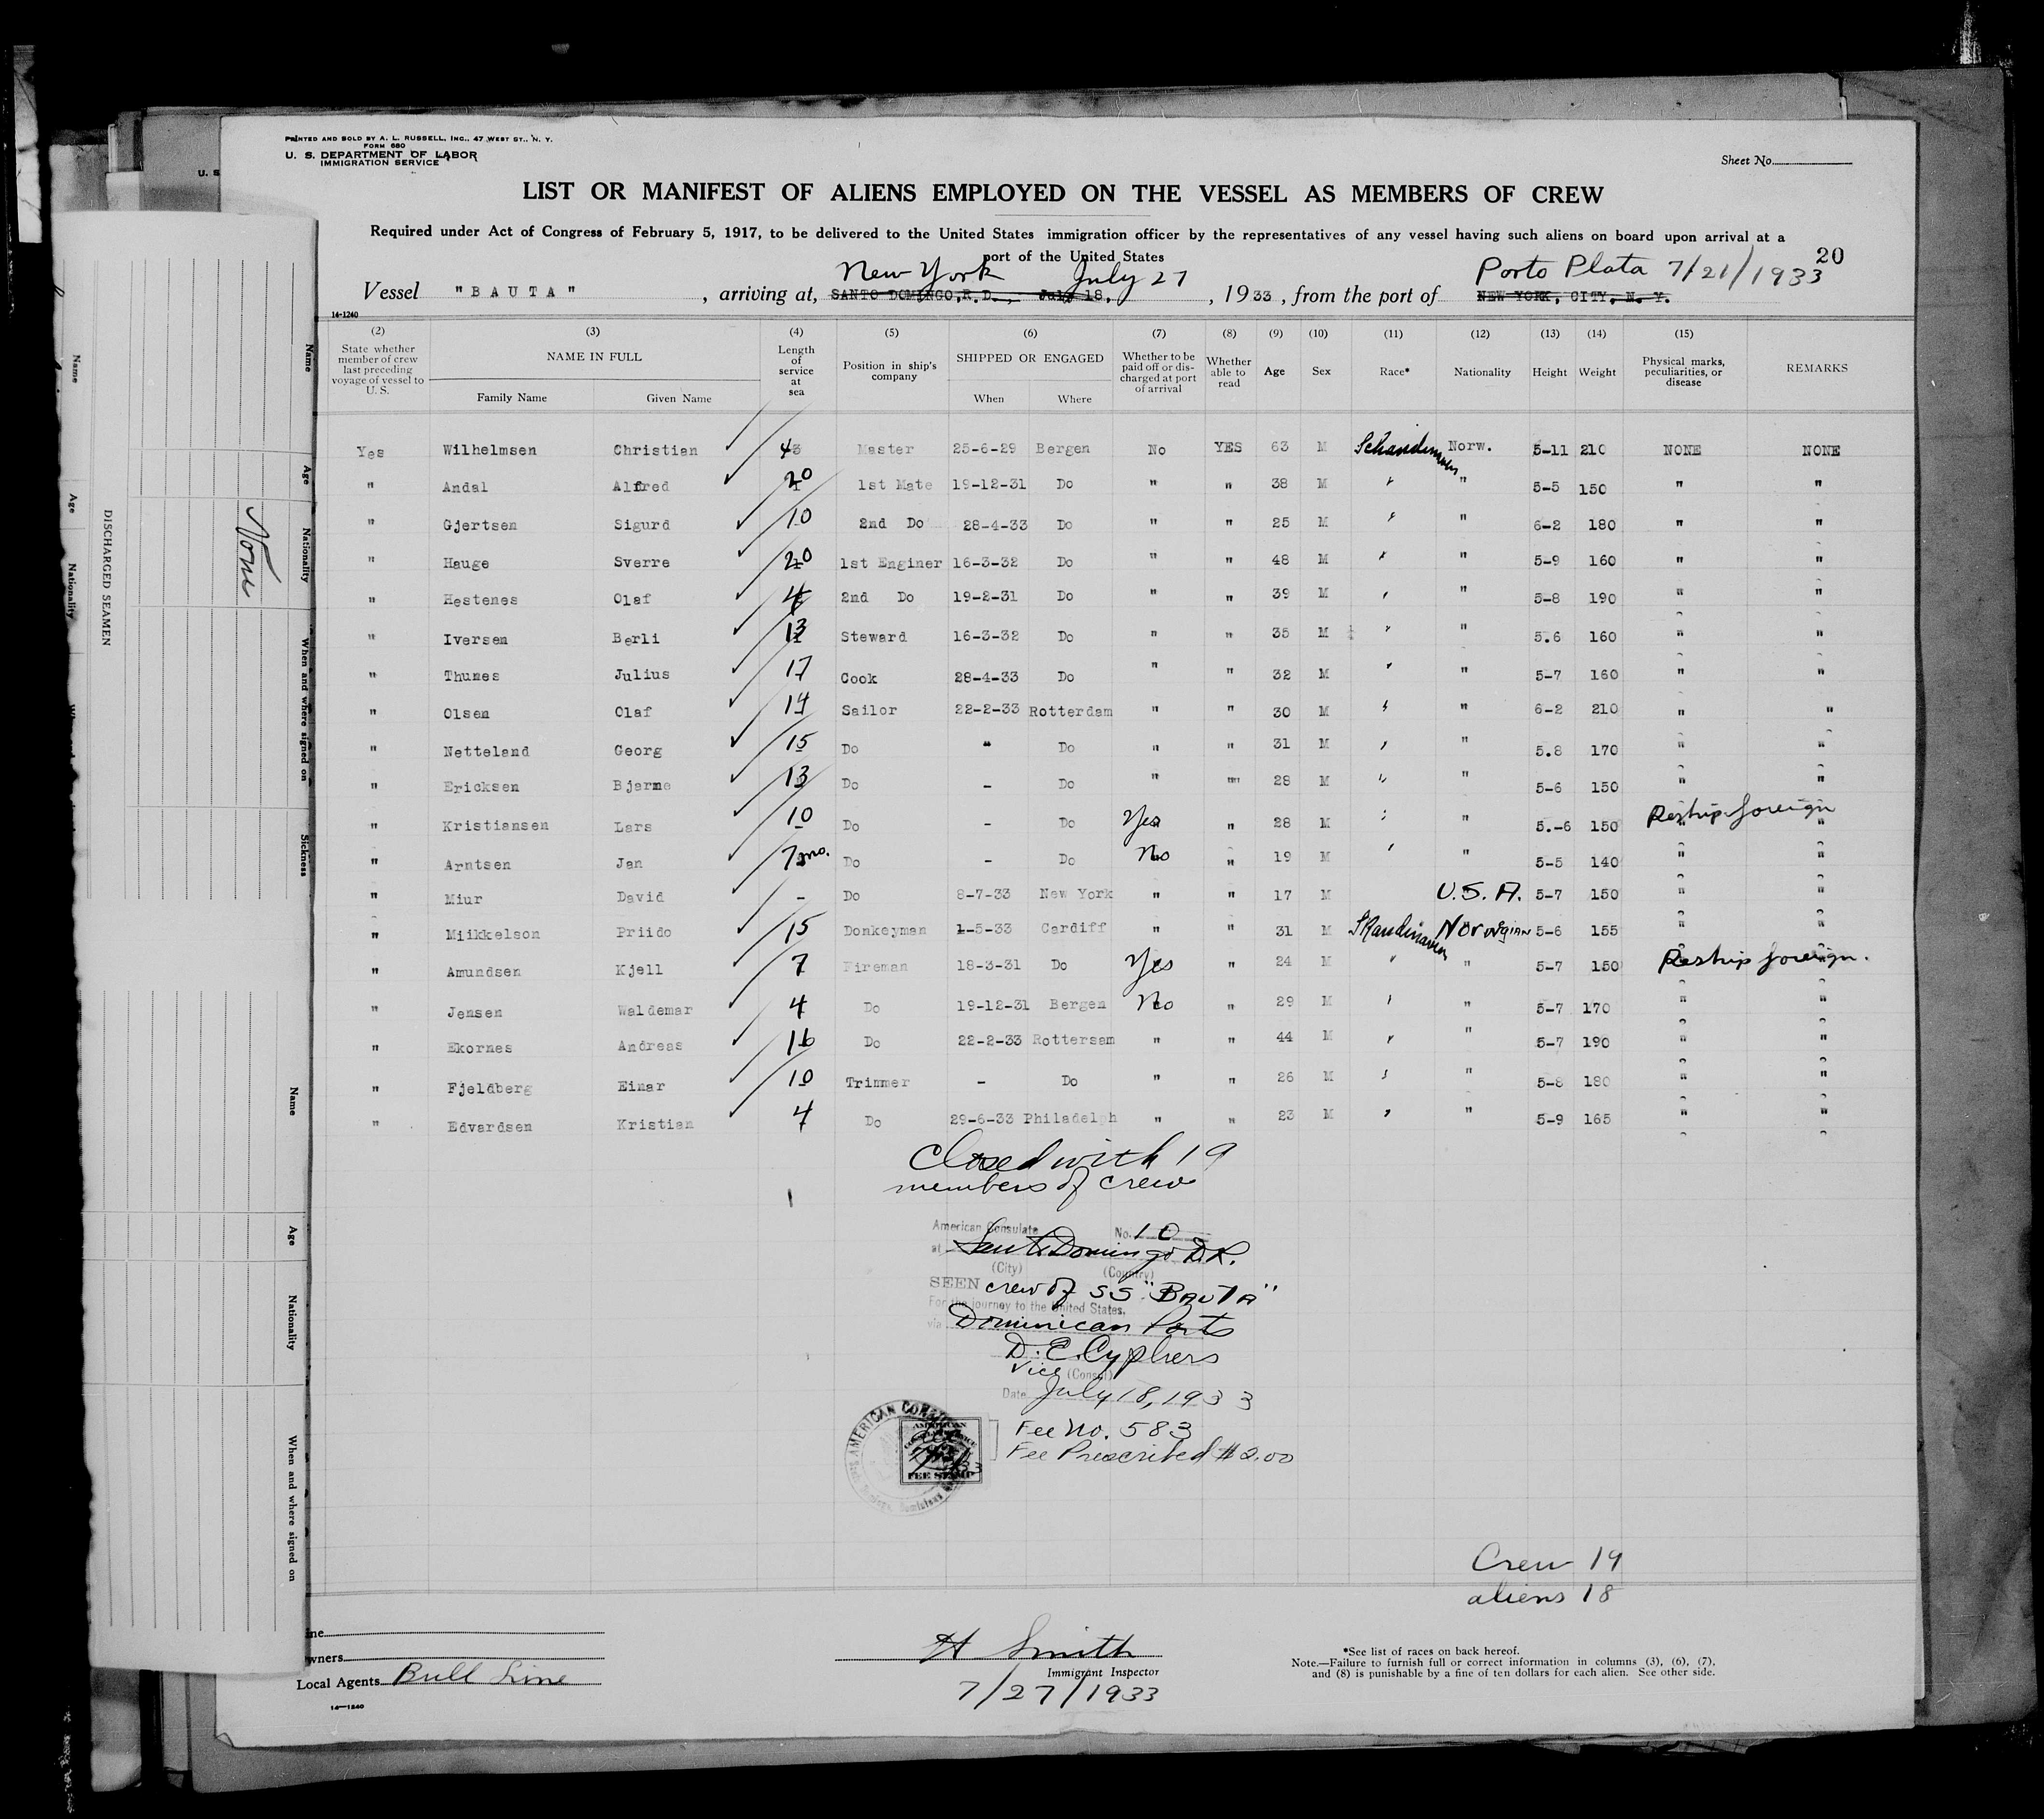 PRINTED AND SOLD BY A. L. RUSSELL, INC., 47 WEST ST., N. Y.
FORM 680
U. S. DEPARTMENT OF LABOR
IMMIGRATION SERVICE
U. S
Sheet No.
LIST OR MANIFEST OF ALIENS EMPLOYED ON THE VESSEL AS MEMBERS OF CREW
Required under Act of Congress of February 5, 1917, to be delivered to the United States immigration officer by the representatives of any vessel having such aliens on board upon arrival at a
port of the United States
20
New York July 27 Porto Plata 7/21/1933
Vessel "BAUTA", arriving at, SANTO DOMINGO, R.D., July 18, 1933, from the port of NEW YORK, CITY, N. Y.
14-1240
(2) (3) (4) (5) (6) (7) (8) (9) (10) (11) (12) (13) (14) (15)
State whether member of crew last preceding voyage of vessel to U. S. NAME IN FULL Length of service at sea Position in ship's company SHIPPED OR ENGAGED Whether to be paid off or discharged at port of arrival Whether able to read Age Sex Race* Nationality Height Weight Physical marks, peculiarities, or disease REMARKS
Family Name Given Name When Where
Yes Wilhelmsen Christian 43 Master 25-6-29 Bergen No YES 63 M Schandinavn Norw. 5-11 210 NONE NONE
" Andal Alfred 20 1st Mate 19-12-31 Do " " 38 M " " 5-5 150 " "
" Gjertsen Sigurd 10 2nd Do 28-4-33 Do " " 25 M " " 6-2 180 " "
" Hauge Sverre 20 1st Enginer 16-3-32 Do " " 48 M " " 5-9 160 " "
" Hestenes Olaf 4 2nd Do 19-2-31 Do " " 39 M " " 5-8 190 " "
" Iversen Berli 13 Steward 16-3-32 Do " " 35 M " " 5.6 160 " "
" Thunes Julius 17 Cook 28-4-33 Do " " 32 M " " 5-7 160 " "
" Olsen Olaf 14 Sailor 22-2-33 Rotterdam " " 30 M " " 6-2 210 " "
" Netteland Georg 15 Do " Do " " 31 M " " 5.8 170 " "
" Ericksen Bjarne 13 Do - Do " "" 28 M " " 5-6 150 " "
" Kristiansen Lars 10 Do - Do Yes " 28 M " " 5.-6 150 Reship foreign
" Arntsen Jan 7 mo. Do - Do No " 19 M " " 5-5 140 " "
" Miur David - Do 8-7-33 New York " " 17 M U.S.A. 5-7 150 " "
" Miikkelson Priido 15 Donkeyman 1-5-33 Cardiff " " 31 M Skandinaven Norwgian 5-6 155 " "
" Amundsen Kjell 7 Fireman 18-3-31 Do Yes " 24 M " " 5-7 150 Reship foreign.
" Jensen Waldemar 4 Do 19-12-31 Bergen No " 29 M " " 5-7 170 " "
" Ekornes Andreas 16 Do 22-2-33 Rottersam " " 44 M " " 5-7 190 " "
" Fjeldberg Einar 10 Trimmer - Do " " 26 M " " 5-8 180 " "
" Edvardsen Kristian 4 Do 29-6-33 Philadelph " " 23 M " " 5-9 165 " "
Closed with 19
members of crew
American Consulate No. 10
at Santo Domingo D.R.
(City) (Country)
SEEN crew of SS "BAUTA"
For the journey to the United States,
via Dominican Ports
D. E. Cyphers
Vice (Consul)
Date July 18, 1933
Fee No. 583
Fee Prescribed $2.00
AMERICAN
FEE STAMP
Crew 19
aliens 18
ine
wners
Local Agents Bull Line
14-1240
H Smith
Immigrant Inspector
7/27/1933
*See list of races on back hereof.
Note.—Failure to furnish full or correct information in columns (3), (6), (7),
and (8) is punishable by a fine of ten dollars for each alien. See other side.
DISCHARGED SEAMEN
Name Age Nationality When and where signed on Sickness
None
Name Age Nationality
Name Age Nationality When and where signed on